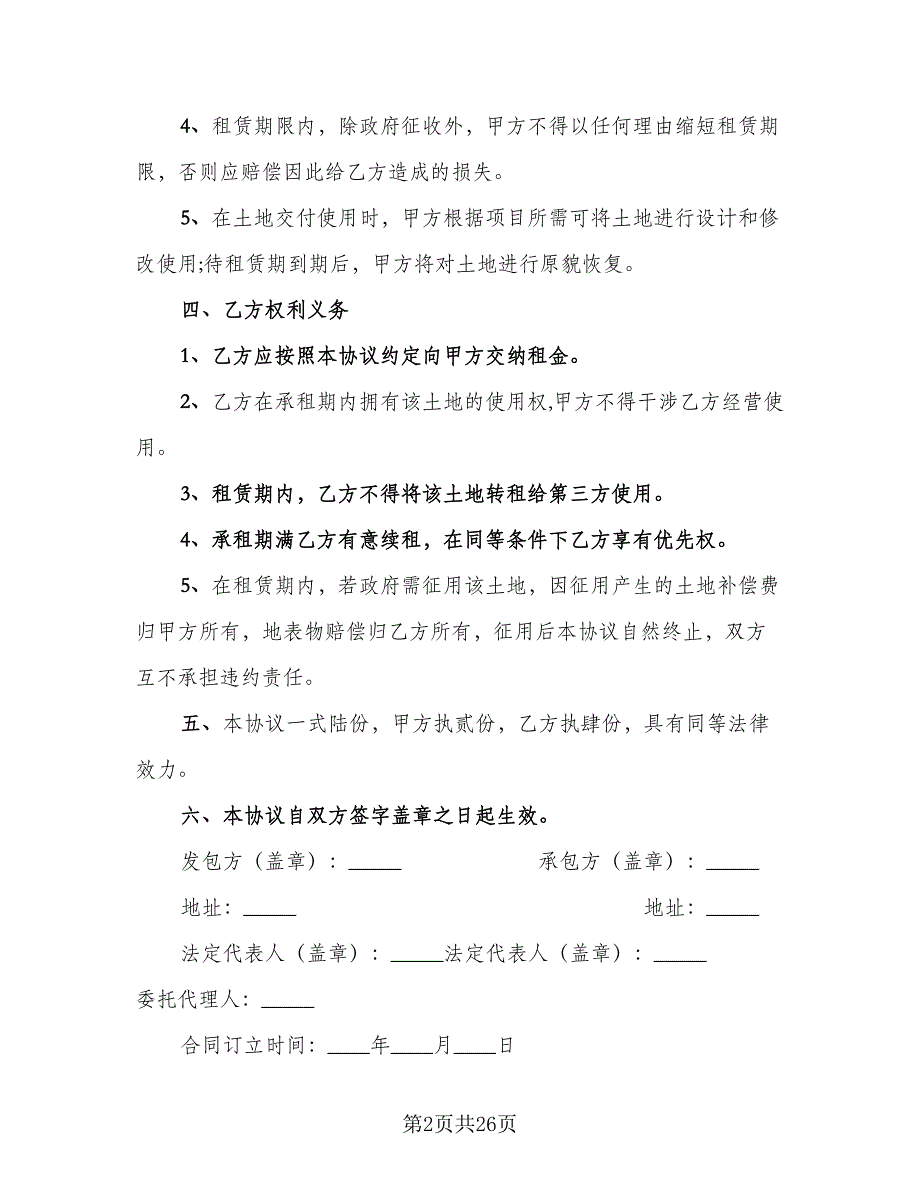 4、租赁期限内，除政府征收外，甲方不得以任何理由缩短租赁期
限，否则应赔偿因此给乙方造成的损失。
5、在土地交付使用时，甲方根据项目所需可将土地进行设计和修
改使用;待租赁期到期后，甲方将对土地进行原貌恢复。
四、乙方权利义务
1、乙方应按照本协议约定向甲方交纳租金。
2、乙方在承租期内拥有该土地的使用权,甲方不得干涉乙方经营使
用。
3、租赁期内，乙方不得将该土地转租给第三方使用。
4、承租期满乙方有意续租，在同等条件下乙方享有优先权。
5、在租赁期内，若政府需征用该土地，因征用产生的土地补偿费
归甲方所有，地表物赔偿归乙方所有，征用后本协议自然终止，双方
互不承担违约责任。
五、本协议一式陆份，甲方执贰份，乙方执肆份，具有同等法律
效力。
六、本协议自双方签字盖章之日起生效。
发包方（盖章）：_____ 承包方（盖章）：_____
地址：_____ 地址：_____
法定代表人（盖章）：_____法定代表人（盖章）：_____
委托代理人：_____
合同订立时间：____年____月____日
第2页共26页